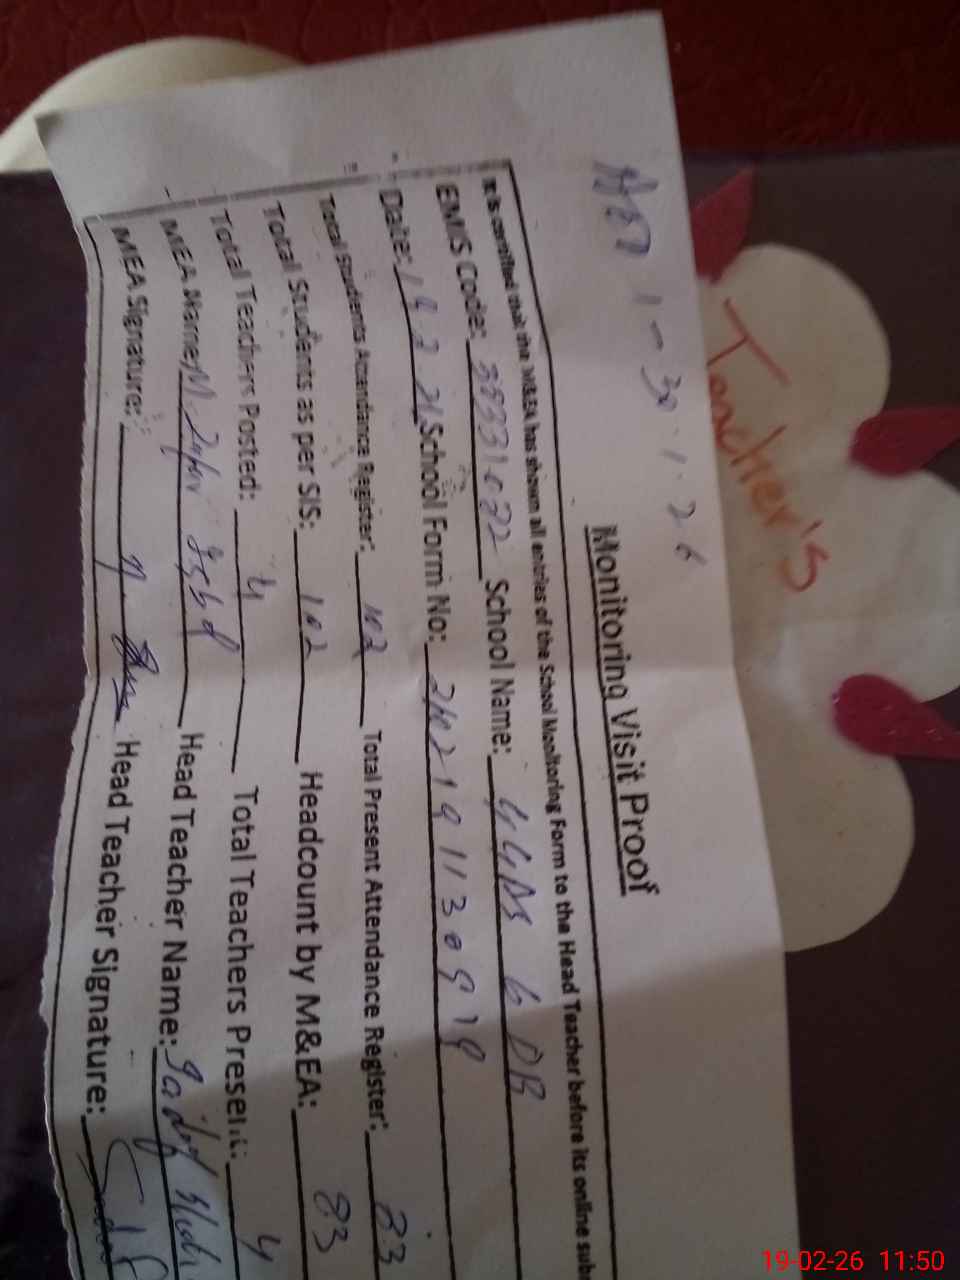 1-30.1.26
Monitoring Visit Proof
It is certified that the M&EA has shown all entries of the School Monitoring Form to the Head Teacher before its online sub
EMIS Code: School Name: 6 DB
Date: 19.2.26 School Form No:
Total Students Attendance Register: 102 Total Present Attendance Register: 83
Total Students as per SIS: 102 Headcount by M&EA: 83
Total Teachers Posted: 4 Total Teachers Present: 4
MEA Name: M. Head Teacher Name:
MEA Signature: Head Teacher Signature:
Teacher's
19-02-26 11:50